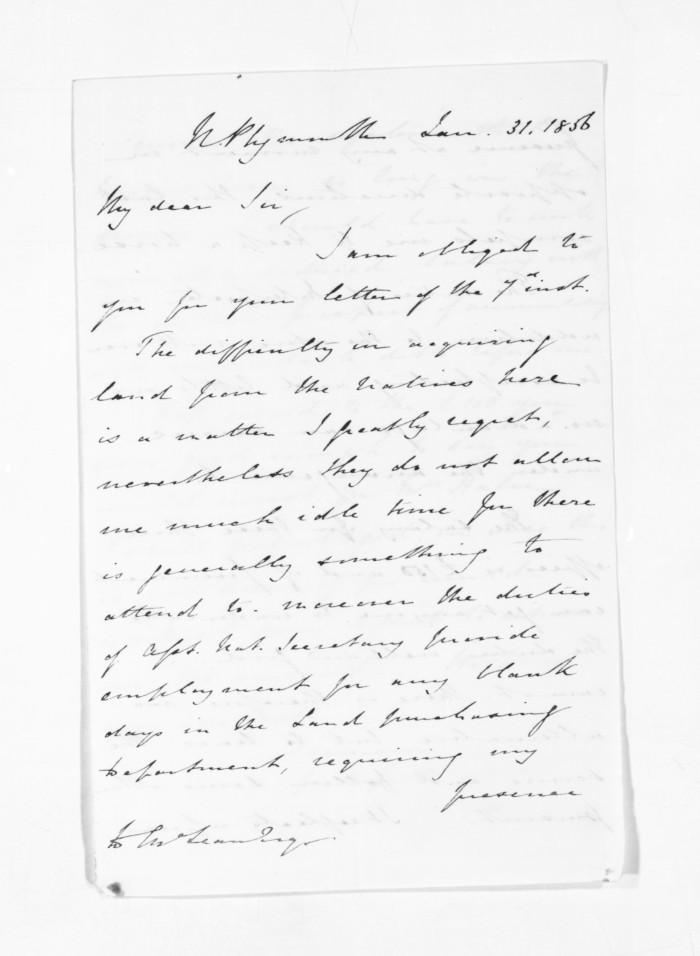 N. Plymouth Jan. 31. 1856
My dear Sir,
I am obliged to
you for your letter of the 7th inst.
The difficulty in acquiring
land from the natives here
is a matter I greatly regret,
nevertheless they do not allow
me much idle time for there
is generally something to
attend to. moreover the duties
of Asst. Nat. Secretary provide
employment for any blank
days in the Land purchasing
Department, requiring my
presence
D McLean Esqr.